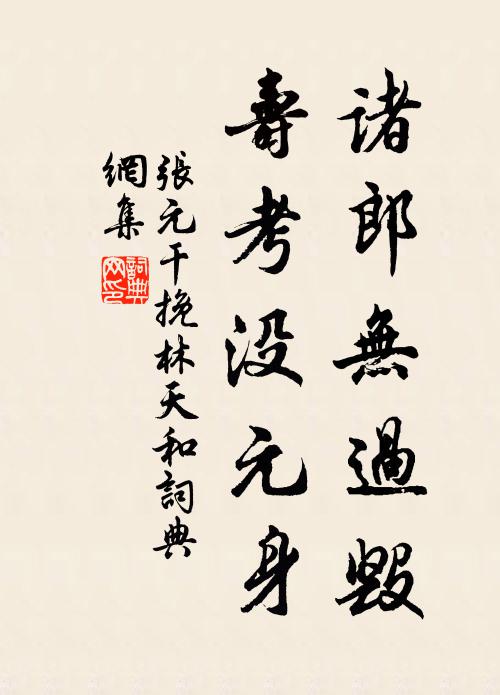 諸郎無過毀
壽考没元身
張元干挽林天和詞典
網集
詞典
网印